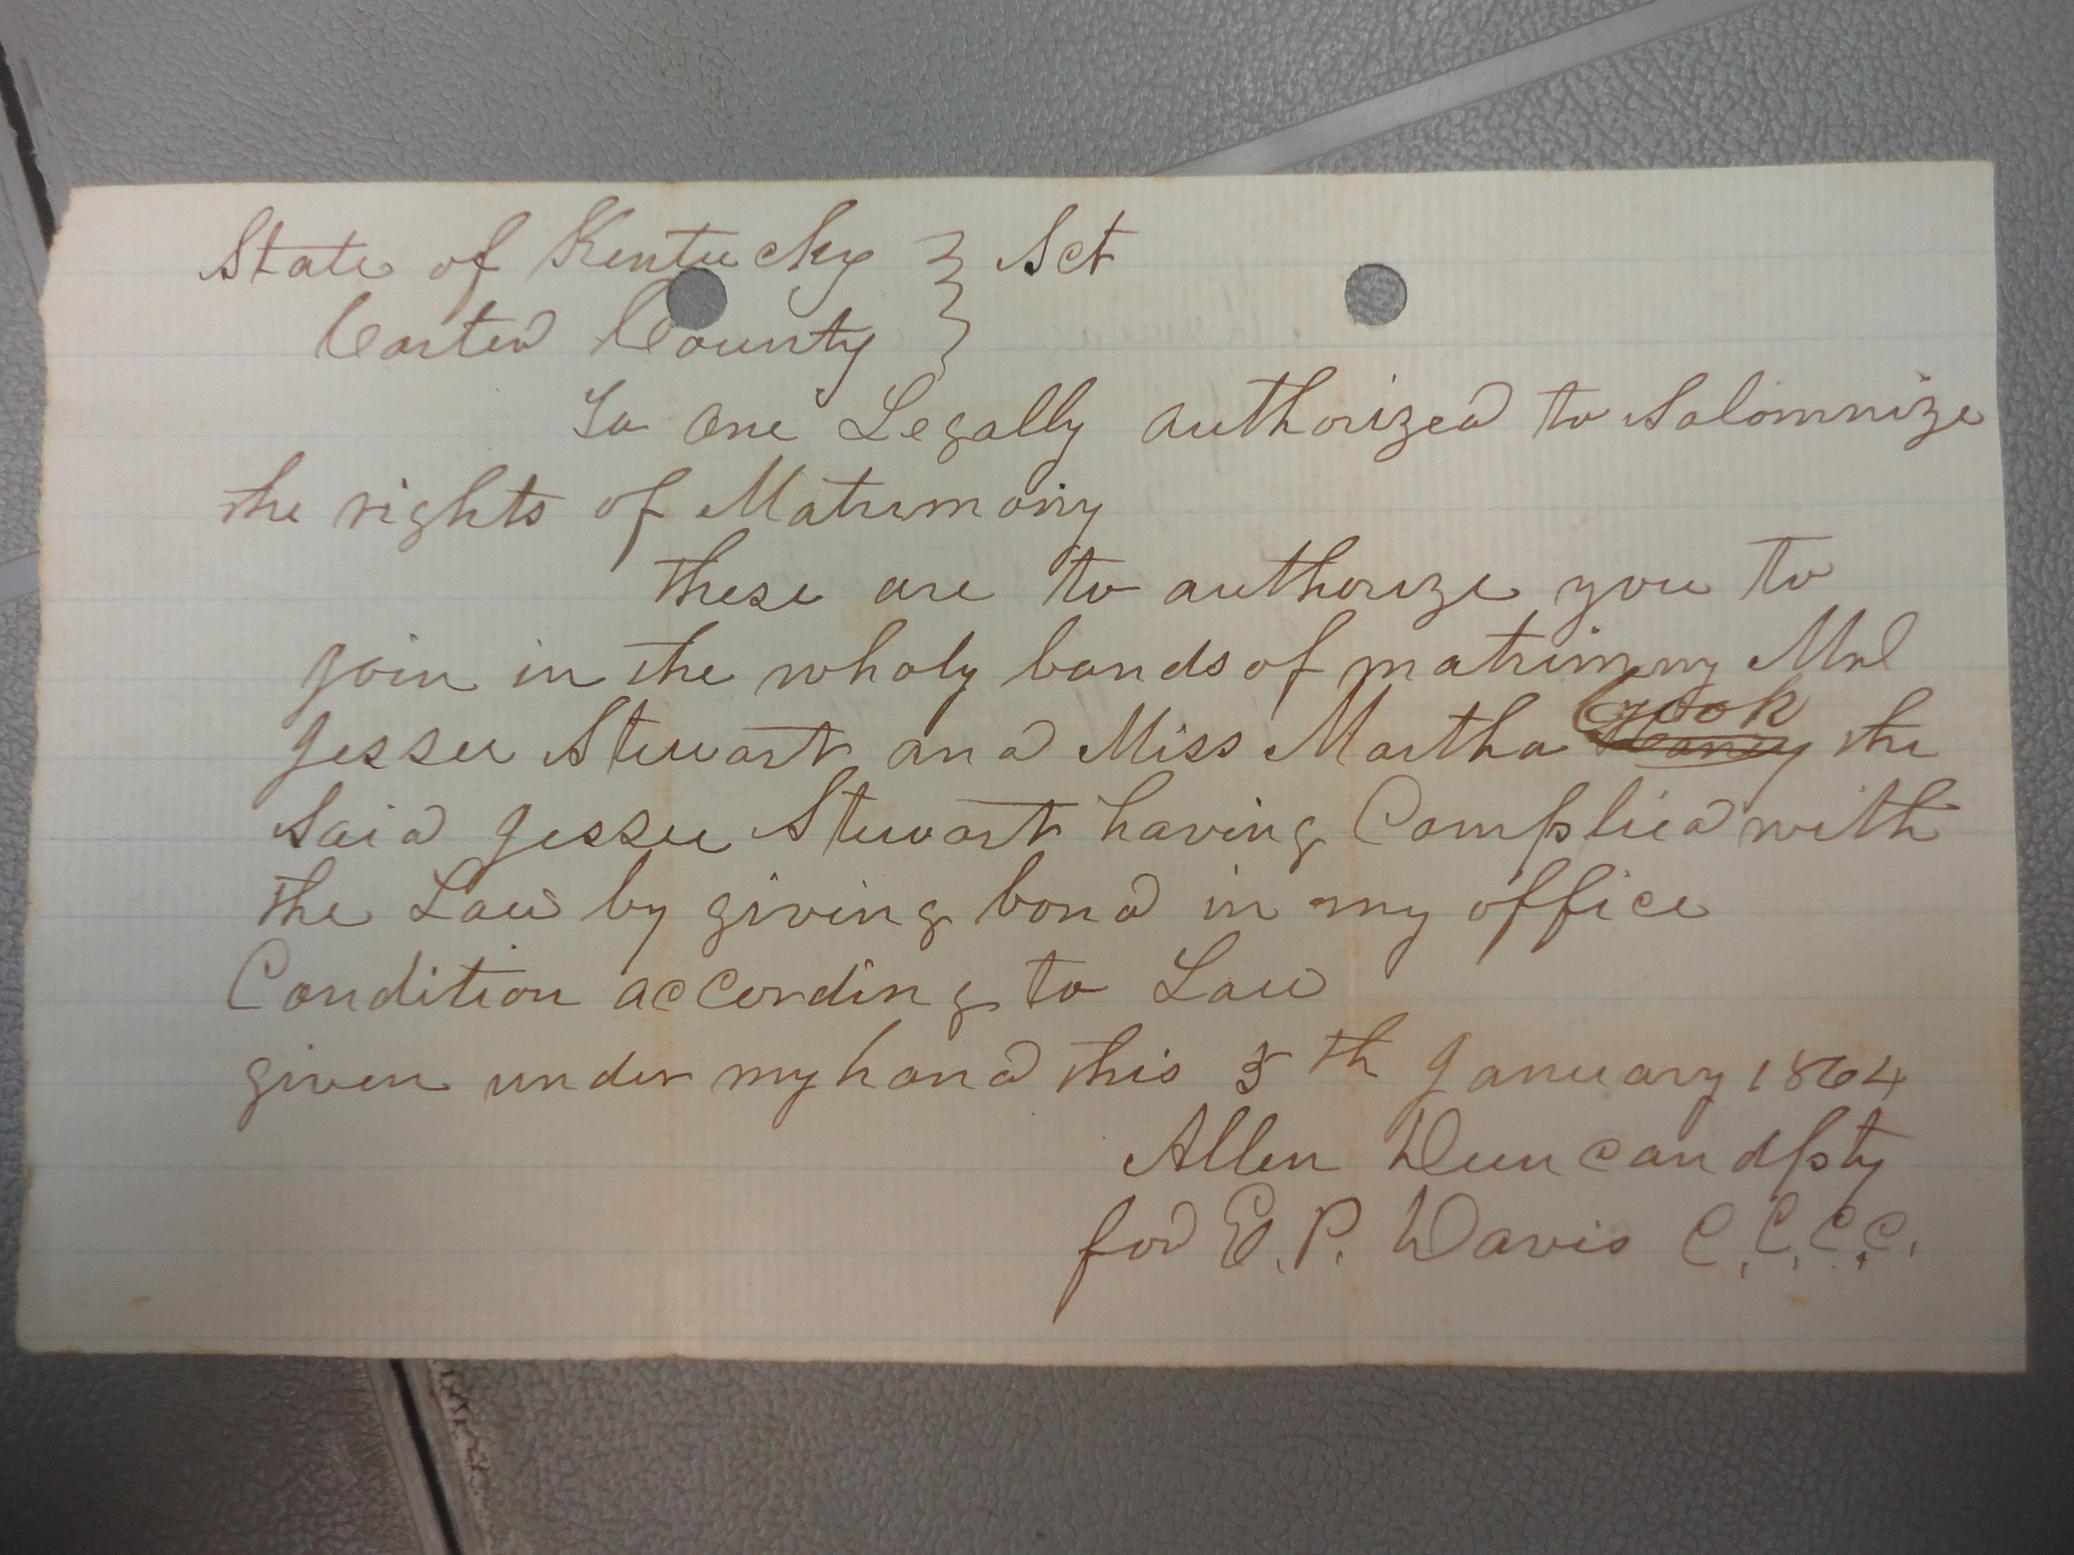 State of Kentucky } Sct
Carter County }
To one Legally authorized to Solomnize
the rights of Matrimony
these are to authorize you to
join in the wholy bands of matrimony Mr
Jessee Stewart and Miss Martha Crook the
Said Jessee Stewart having Complied with
the Law by giving bond in my office
Condition according to Law
given under my hand this 5th January 1864
Allen Duncan dpty
for E. P. Davis C.C.C.C.